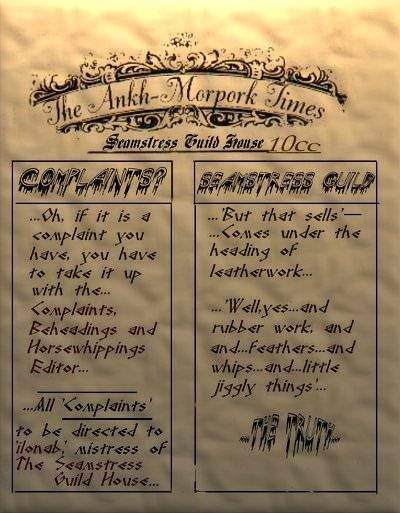 The Ankh-Morpork Times
Seamstress Guild House 10cc
COMPLAINTS?
...Oh, if it is a
complaint you
have, you have
to take it up
with the...
Complaints,
Beheadings and
Horsewhippings
Editor...
...All 'Complaints'
to be directed to
'ilonab,' mistress of
The Seamstress
Guild House...
SEAMSTRESS GUILD
...'But that sells'—
...Comes under the
heading of
leatherwork...
...'Well,yes...and
rubber work, and
and...feathers...and
whips...and...little
jiggly things'...
...THE TRUTH...